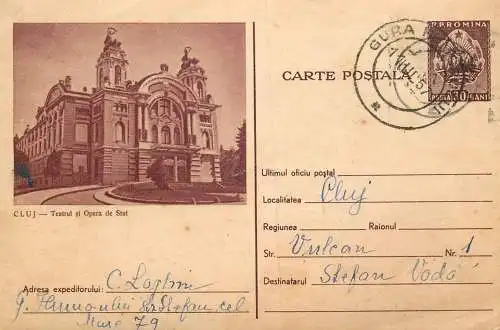 CLUJ — Teatrul și Opera de Stat
Adresa expeditorului: C.
Ștefan cel
Mare 79
R.P.ROMINA
GURA
CARTE POSTALĂ
POSTA 30 BANI
Ultimul oficiu poștal
Localitatea Cluj
Regiunea Raionul
Str. Vulcan Nr. 1
Destinatarul Stefan Vodă